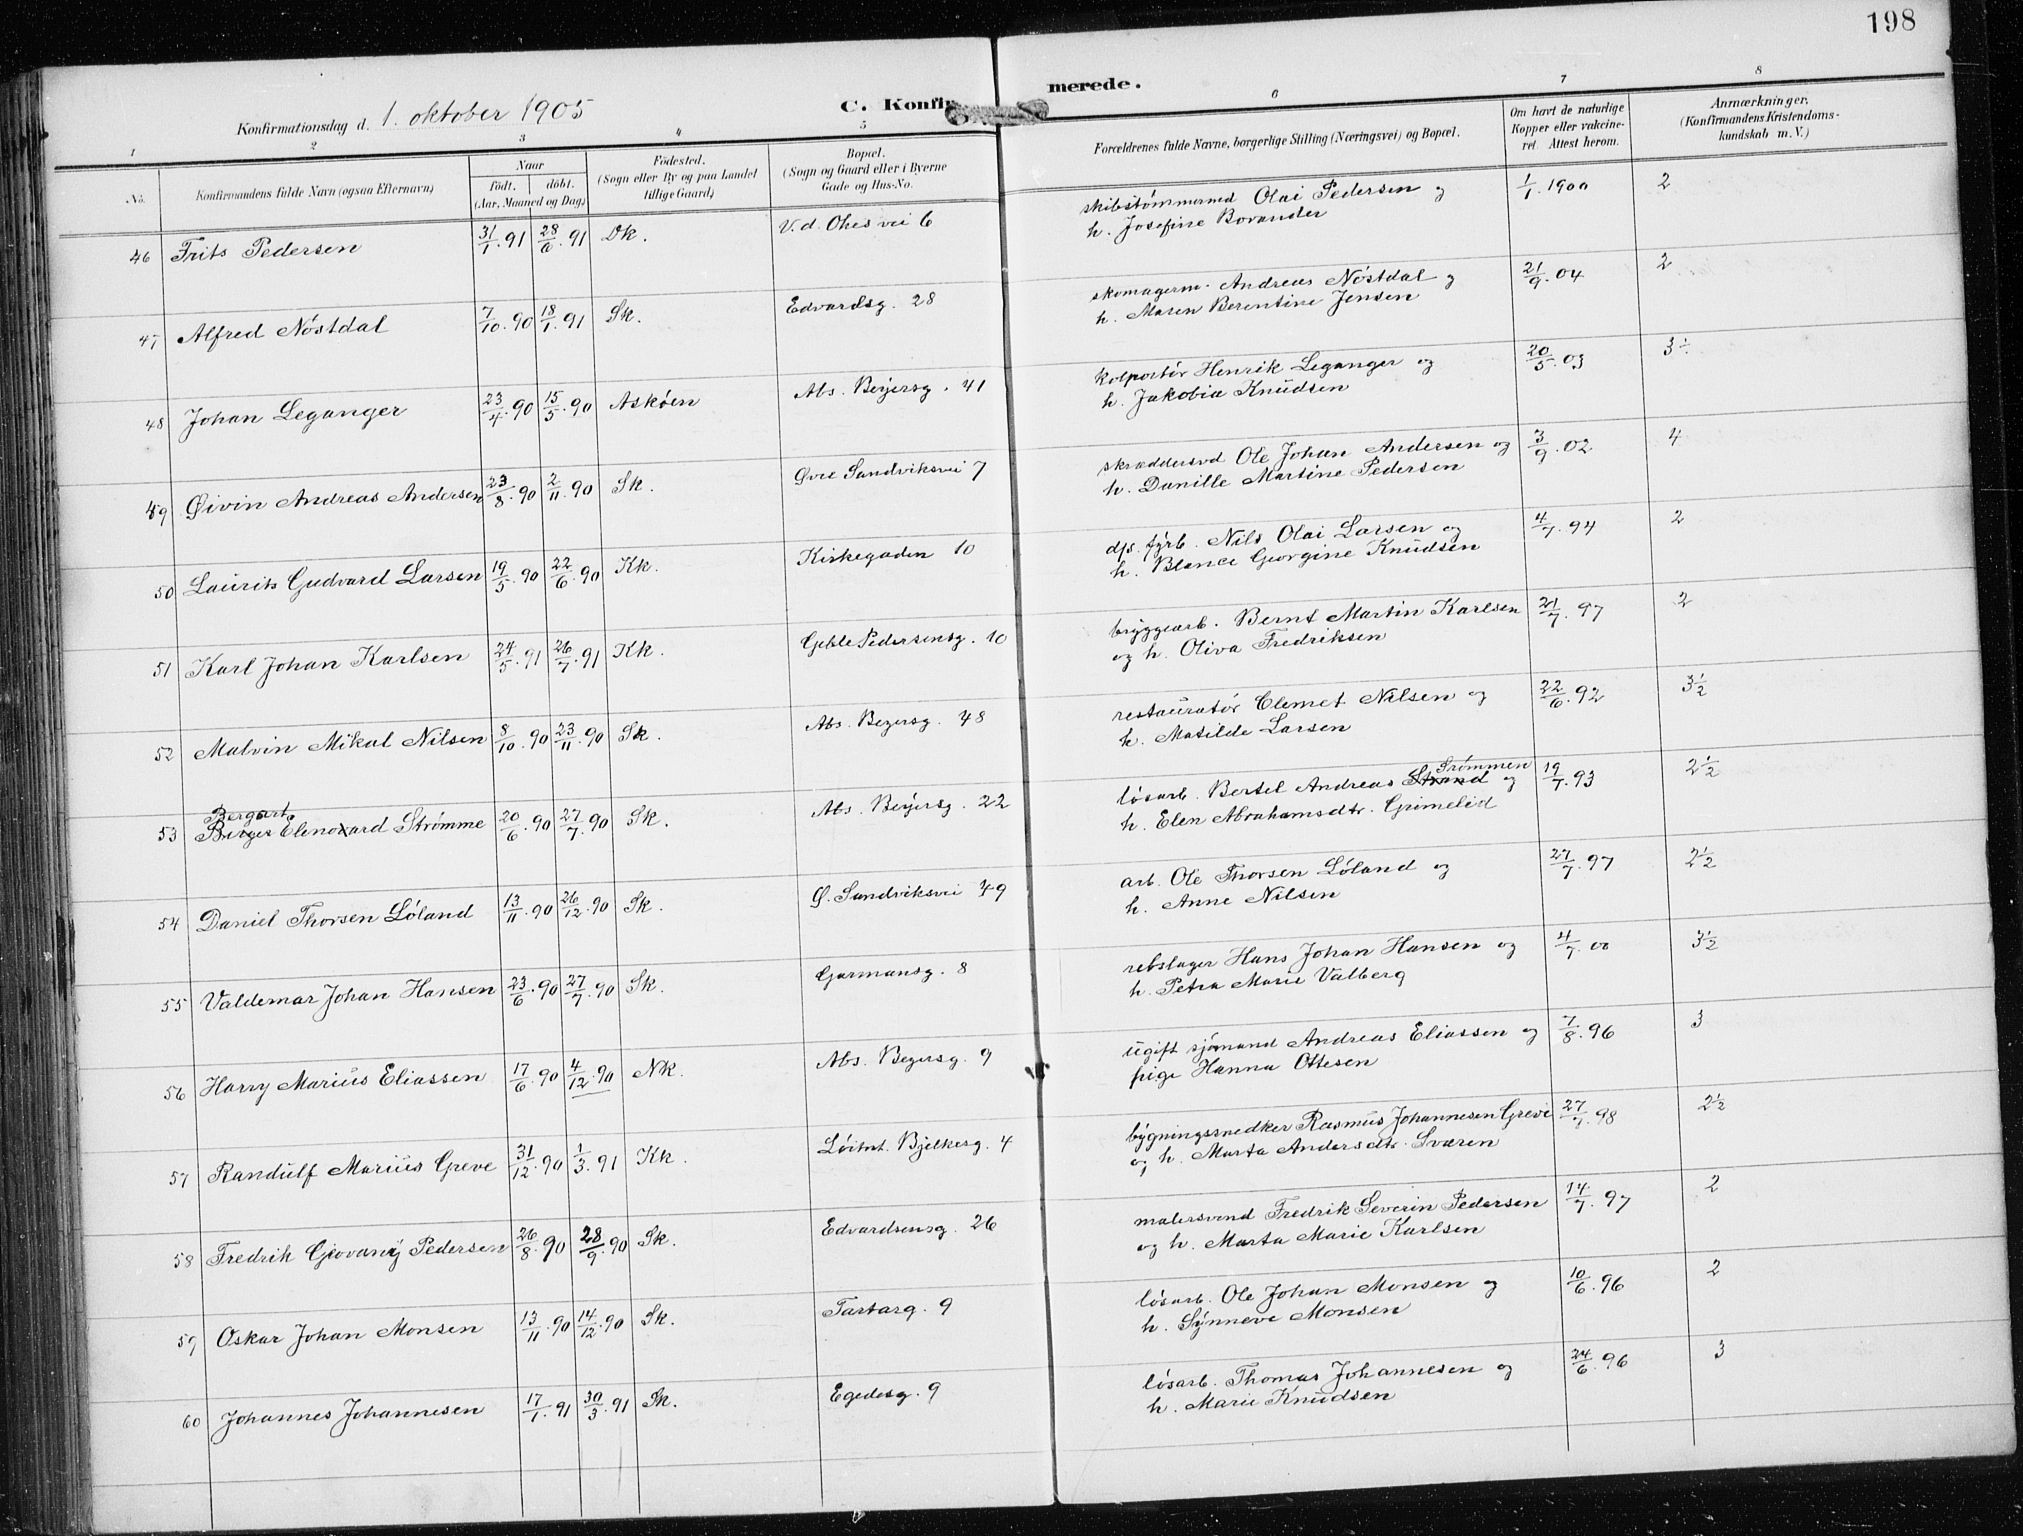 198
Konfirmationsdag d. 1. oktober 1905
C. Konfir
merede.
1 2 3 4 5 6 7 8
No. Konfirmandens fulde Navn (ogsaa Efternavn) Naar født. døbt. (Aar, Maaned og Dag) Fødested. (Sogn eller By og paa Landet tillige Gaard) Bopæl. (Sogn og Gaard eller i Byerne Gade og Hus-No. Forældrenes fulde Navne, borgerlige Stilling (Næringsvei) og Bopæl. Om havt de naturlige Kopper eller vakcineret. Attest herom. Anmærkninger, (Konfirmandens Kristendomskundskab m. V.)
46 Frits Pedersen 31/1.91 28/6.91 Dk. V. d. Ohes vei 6 skibstømmermd Olai Pedersen og 1/1.1900 2
h. Josefine Borander
47 Alfred Nöstdal 7/10.90 18/1.91 Sk. Edvardsg. 28 skomagerm. Andreas Nöstdal og 21/9.04 2
h. Maren Berentine Jensen
48 Johan Leganger 23/4.90 15/5.90 Asköen Abs. Beyersg. 41 kolportör Henrik Leganger og 20/5.03
h. Jakobia Knudsen
49 Øivin Andreas Andersen 23/8.90 2/11.90 Sk. Øvre Sandviksvei 7 skræddersvd Ole Johan Andersen og 3/9.02 4
h. Danille Martine Pedersen
50 Laurits Gudvard Larsen 19/5.90 22/6.90 Kk. Kirkegaden 10 dps. fyrb. Nils Olai Larsen og 4/7.94 2
h. Blance Georgine Knudsen
51 Karl Johan Karlsen 24/5.91 26/7.91 Kk. Geble Pedersensg. 10 bryggearb. Bernt Martin Karlsen 21/7.97 2
og h. Oliva Fredriksen
52 Malvin Mikal Nilsen 8/10.90 23/11.90 Sk. Abs. Beyersg. 48 restauratör Clemet Nilsen og 22/6.92 3½
h. Matilde Larsen
Bergart
Strömmen
53 Birger Elenovard Strömme 20/6.90 27/7.90 Sk. Abs. Beyersg. 22 lösarb. Bertel Andreas Strand og 19/7.93 2½
h. Elen Abrahamsdtr. Grimelid
54 Daniel Thorsen Löland 13/11.90 26/12.90 Sk. Ø. Sandviksvei 49 arb. Ole Thorsen Löland og 27/7.97 2½
h. Anne Nilsen
55 Valdemar Johan Hansen 23/6.90 27/7.90 Sk. Garmansg. 8 rebslager Hans Johan Hansen og 4/7.00 3½
h. Petra Marie Valberg
56 Harry Marius Eliassen 17/6.90 4/12.90 Nk. Abs. Beyersg. 9 ugift sjömand Andreas Eliassen og 7/8.96 3
pige Hanna Ottesen
57 Randulf Marius Greve 31/12.90 1/3.91 Kk. Löitnt. Bjelkesg. 4 bygningssnedker Rasmus Johannesen Greve 27/7.98 2½
og h. Marta Andersdtr. Sværen
58 Fredrik Giovany Pedersen 26/8.90 28/9.90 Sk. Edvardsensg. 26 malersvend Fredrik Severin Pedersen 14/7.97 2
og h. Marta Marie Karlsen
59 Oskar Johan Monsen 13/11.90 14/12.90 Sk. Tartarg. 9 lösarb. Ole Johan Monsen og 10/6.96 2
h. Synneve Monsen
60 Johannes Johannesen 17/1.91 30/3.91 Sk. Egedesg. 9 lösarb. Thomas Johannesen og 24/6.96 3
h. Marie Knudsen